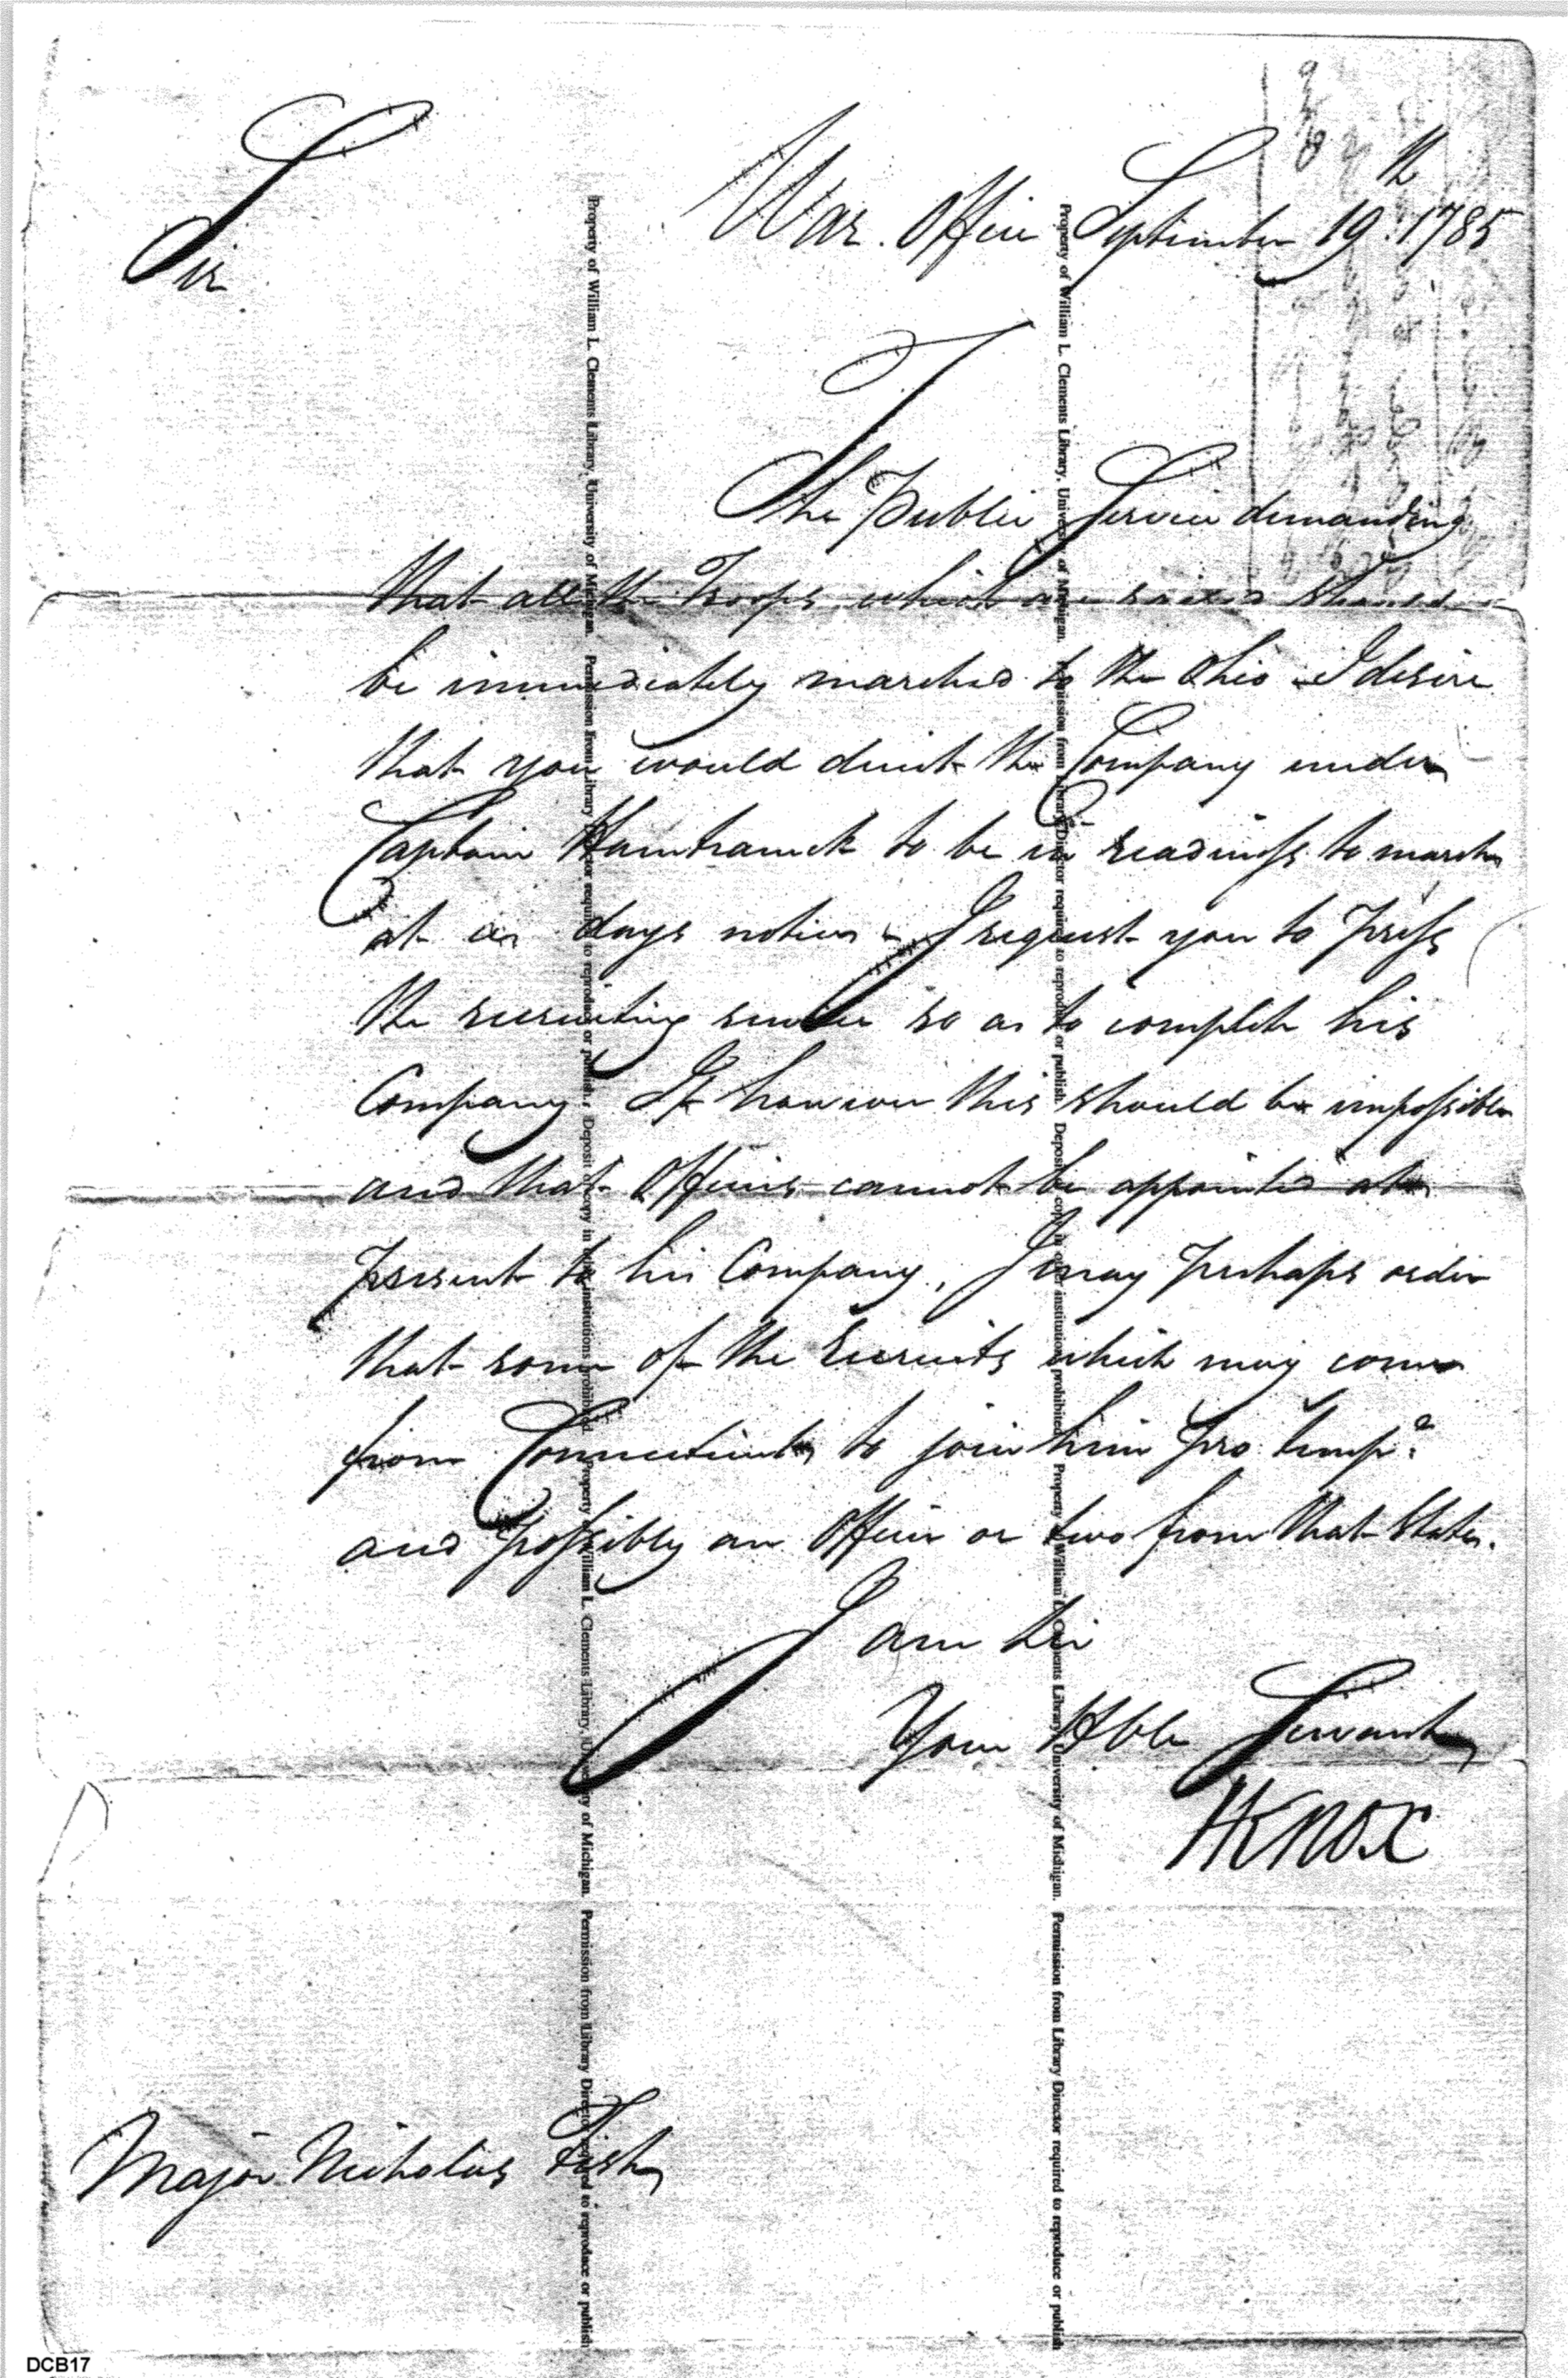 Sir
War Office September 19th 1785
The Public Service demanding
that all the Troops which are raised should
be immediately marched to the Ohio I desire
that you would direct the Company under
Captain Hamtramck to be in readiness to march
at a days notice - I request you to press
the recruiting service so as to complete his
Company If however this should be impossible
and that Officers cannot be appointed at
present to his Company, I may perhaps order
that some of the recruits which may come
from Connecticut to join him pro tempe
and possibly an Officer or two from that State.
I am Sir
Your Hble Servant
HKnox
Major Nicholas Fish
Property of William L. Clements Library, University of Michigan. Permission from Library Director required to reproduce or publish. Deposit copy in other institutions prohibited.
Property of William L. Clements Library, University of Michigan. Permission from Library Director required to reproduce or publish
Property of William L. Clements Library, University of Michigan. Permission from Library Director required to reproduce or publish. Deposit copy in other institutions prohibited.
Property of William L. Clements Library, University of Michigan. Permission from Library Director required to reproduce or publish
DCB17